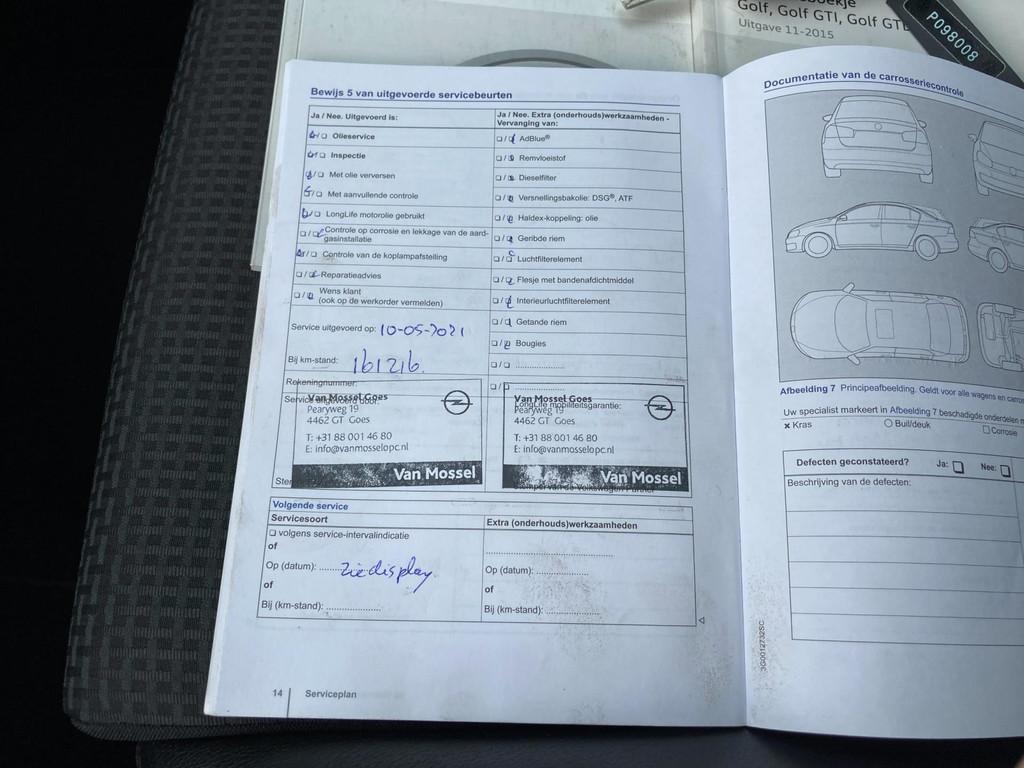 oekje
Golf, Golf GTI, Golf GTE
Uitgave 11-2015
P098008
Bewijs 5 van uitgevoerde servicebeurten
Ja / Nee. Uitgevoerd is:
☐ Olieservice
☐ Inspectie
/☐ Met olie verversen
/☐ Met aanvullende controle
/☐ LongLife motorolie gebruikt
☐/ Controle op corrosie en lekkage van de aard-
gasinstallatie
/☐ Controle van de koplampafstelling
☐/ Reparatieadvies
☐/☐ Wens klant
(ook op de werkorder vermelden)
Service uitgevoerd op: 10-05-2021
Bij km-stand: 161216.
Rekeningnummer:
Service uitgevoerd door:
Van Mossel Goes
Pearyweg 19
4462 GT Goes
T: +31 88 001 46 80
E: info@vanmosselopc.nl
Van Mossel
Ja / Nee. Extra (onderhouds)werkzaamheden -
Vervanging van:
☐/☐ AdBlue®
☐/☐ Remvloeistof
☐/☐ Dieselfilter
☐/☐ Versnellingsbakolie: DSG®, ATF
☐/☐ Haldex-koppeling: olie
☐/☐ Geribde riem
☐/☐ Luchtfilterelement
☐/☐ Flesje met bandenafdichtmiddel
☐/☐ Interieurluchtfilterelement
☐/☐ Getande riem
☐/☐ Bougies
☐/☐ ....................
☐/☐ ....................
LongLife mobiliteitsgarantie:
Van Mossel Goes
Pearyweg 19
4462 GT Goes
T: +31 88 001 46 80
E: info@vanmosselopc.nl
Van Mossel
Volgende service
Servicesoort
☐ volgens service-intervalindicatie
of
Op (datum): ...... zie display
of
Bij (km-stand): ..................
Extra (onderhouds)werkzaamheden
..........................................
Op (datum): .................
of
Bij (km-stand): .................
14 Serviceplan
Documentatie van de carrosseriecontrole
Afbeelding 7 Principeafbeelding. Geldt voor alle wagens en
Uw specialist markeert in Afbeelding 7 beschadigde onderdelen
x Kras ○ Buil/deuk ☐ Corrosie
Defecten geconstateerd? Ja: ☐ Nee: ☐
Beschrijving van de defecten:
3G0012732SC